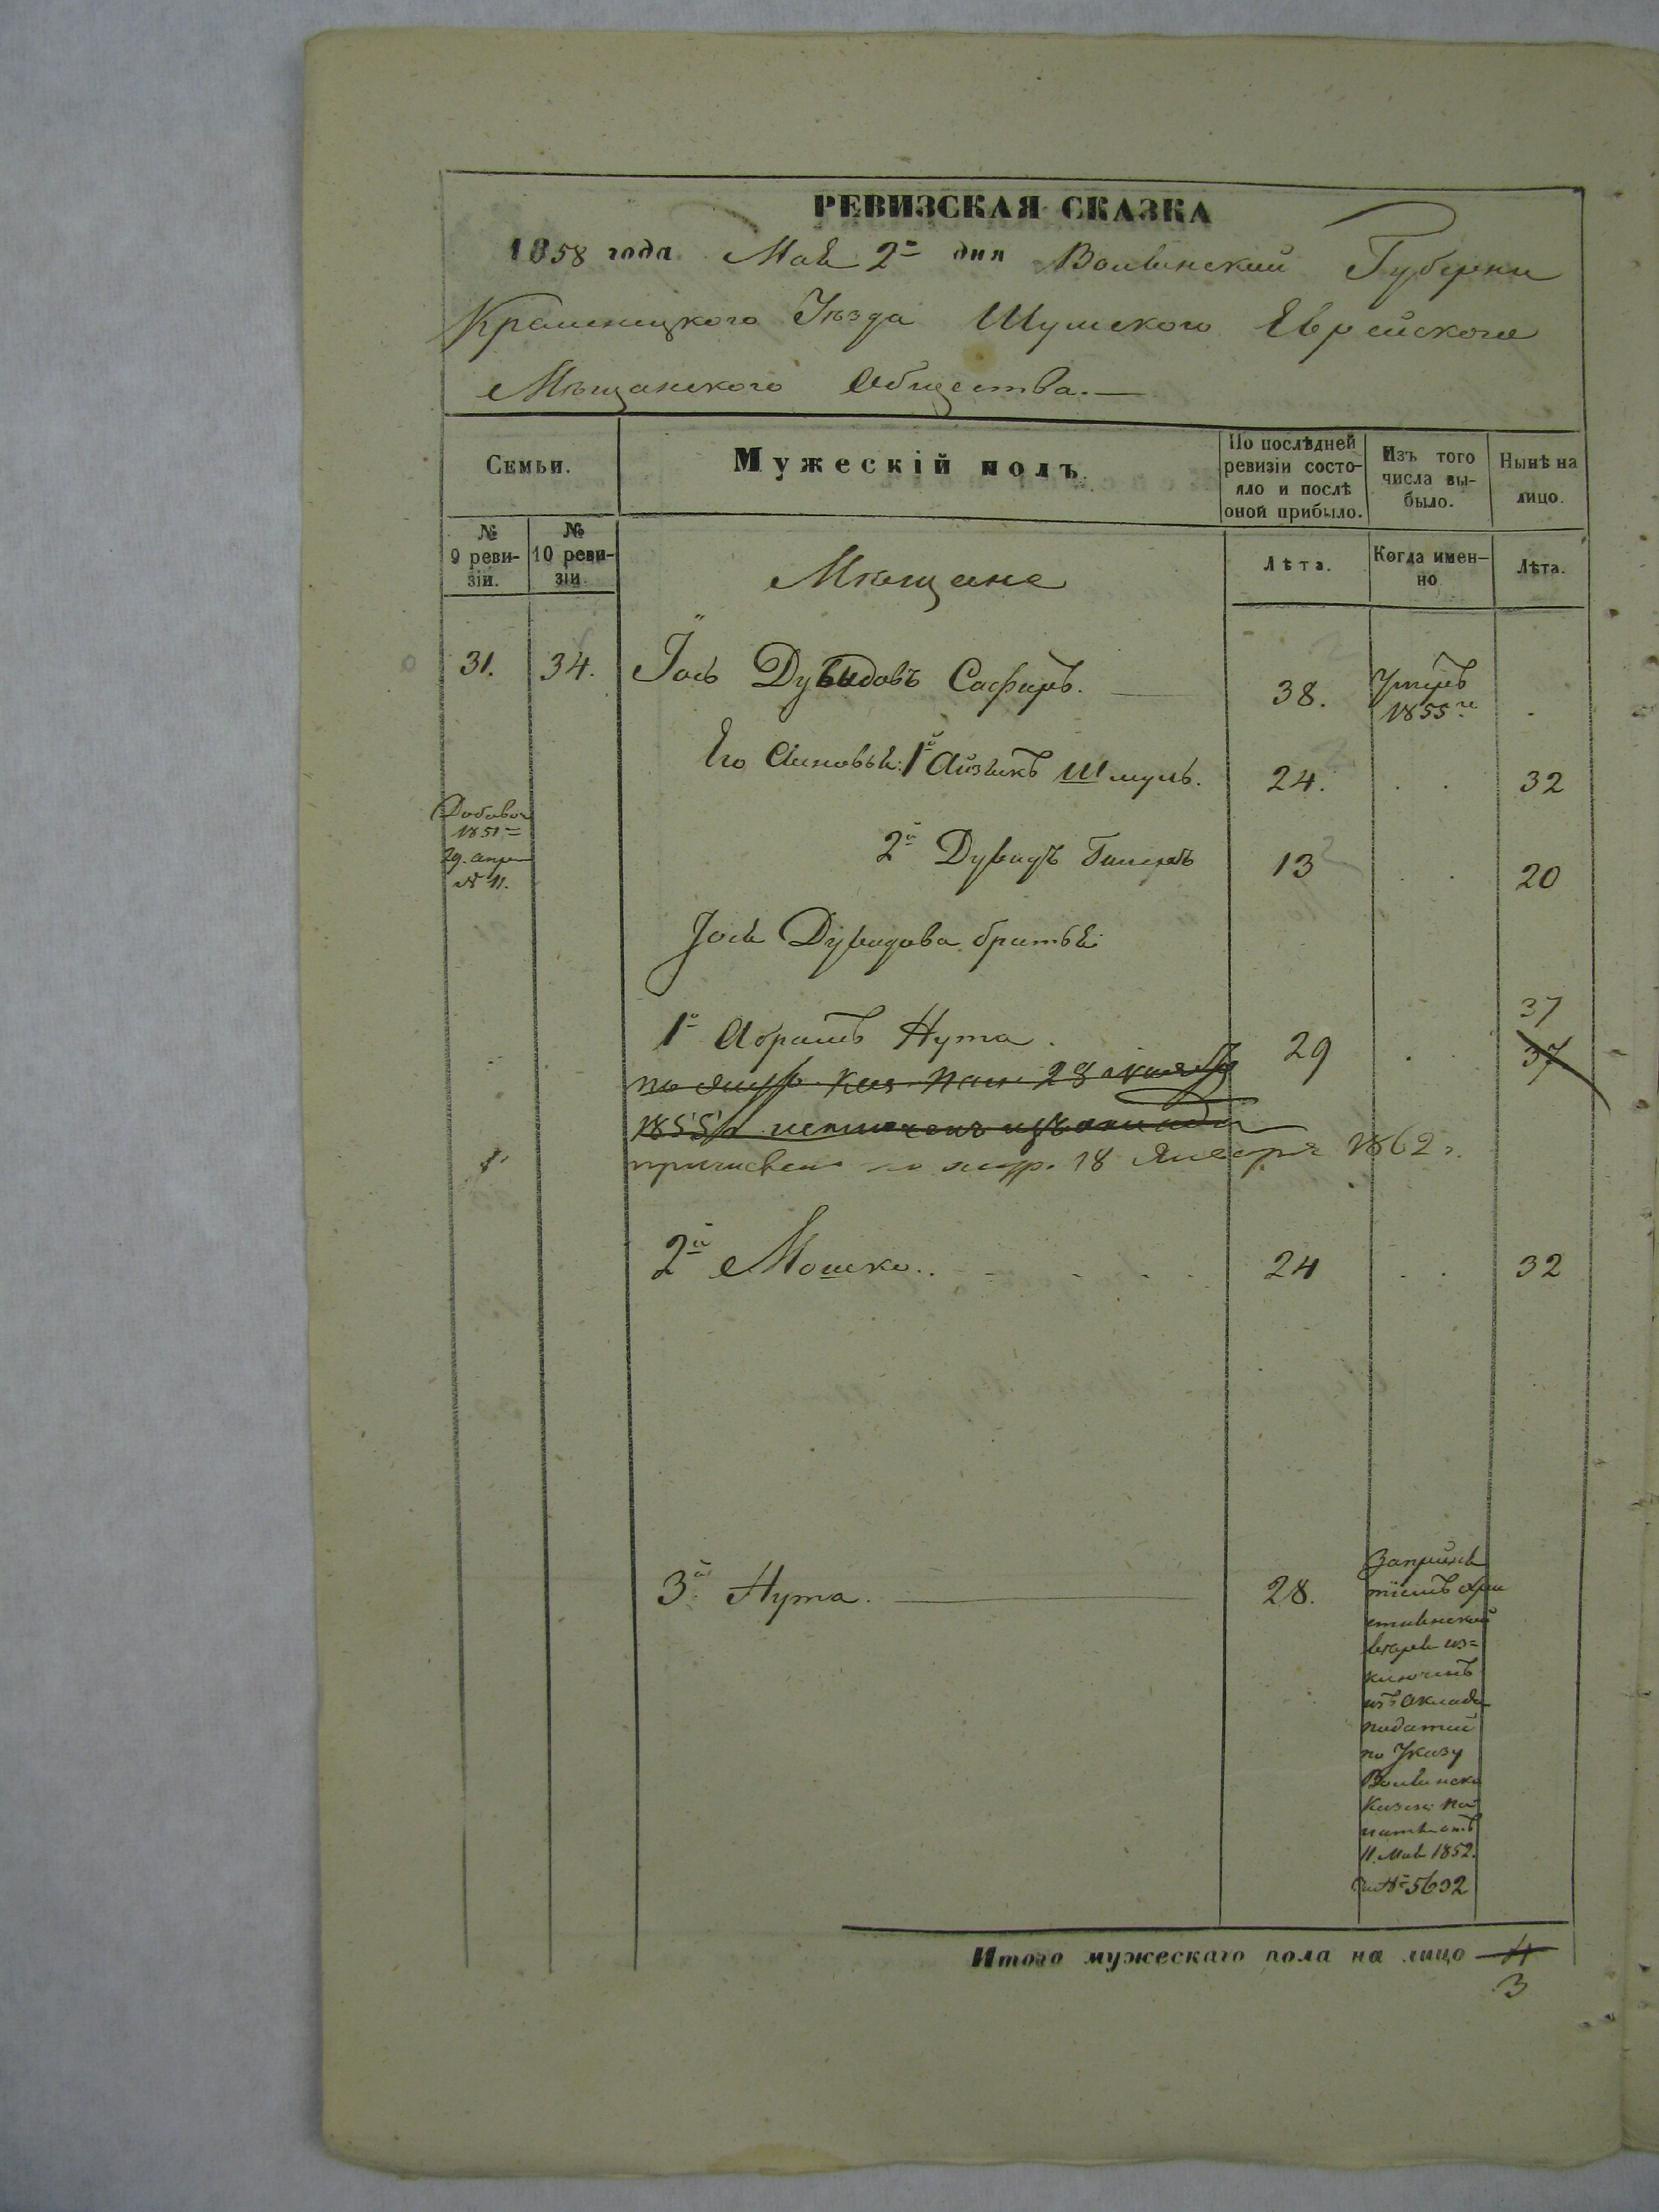 РЕВИЗСКАЯ СКАЗКА
1858 года Мая 2го дня Волынской Губернии
Кременецкого Уѣзда Шумского Еврейского
Мѣщанского Общества.—
Семьи.
Мужескій полъ.
По послѣдней ревизіи состо-
яло и послѣ
оной прибыло.
Изъ того
числа вы-
было.
Нынѣ на
лицо.
№
9 реви-
зіи.
№
10 реви-
зіи.
Мѣщане
Лѣта.
Когда имен-
но
Лѣта.
31. 34. Іось Дувидовъ Сафиръ. 38. Умеръ
1855го
Его Сыновья: 1й Айзикъ Шмуль. 24. 32
Добавоч
1851
29. апре
№ 11.
2й Дувидъ 13 20
Іося Дувидова братья
37
1й Абрамъ Нута. 29 37
1855
18 Января 1862 г.
2й Мошко. 24 32
3й Нута. 28.
Запринятіемъ хри
стіянской
вѣры из=
ключенъ
изъ Оклада
податей
по Указу
Волынско
Казен: па
латы отъ
11. Мая 1852.
за № 5632
Итого мужескаго пола на лицо 4
3